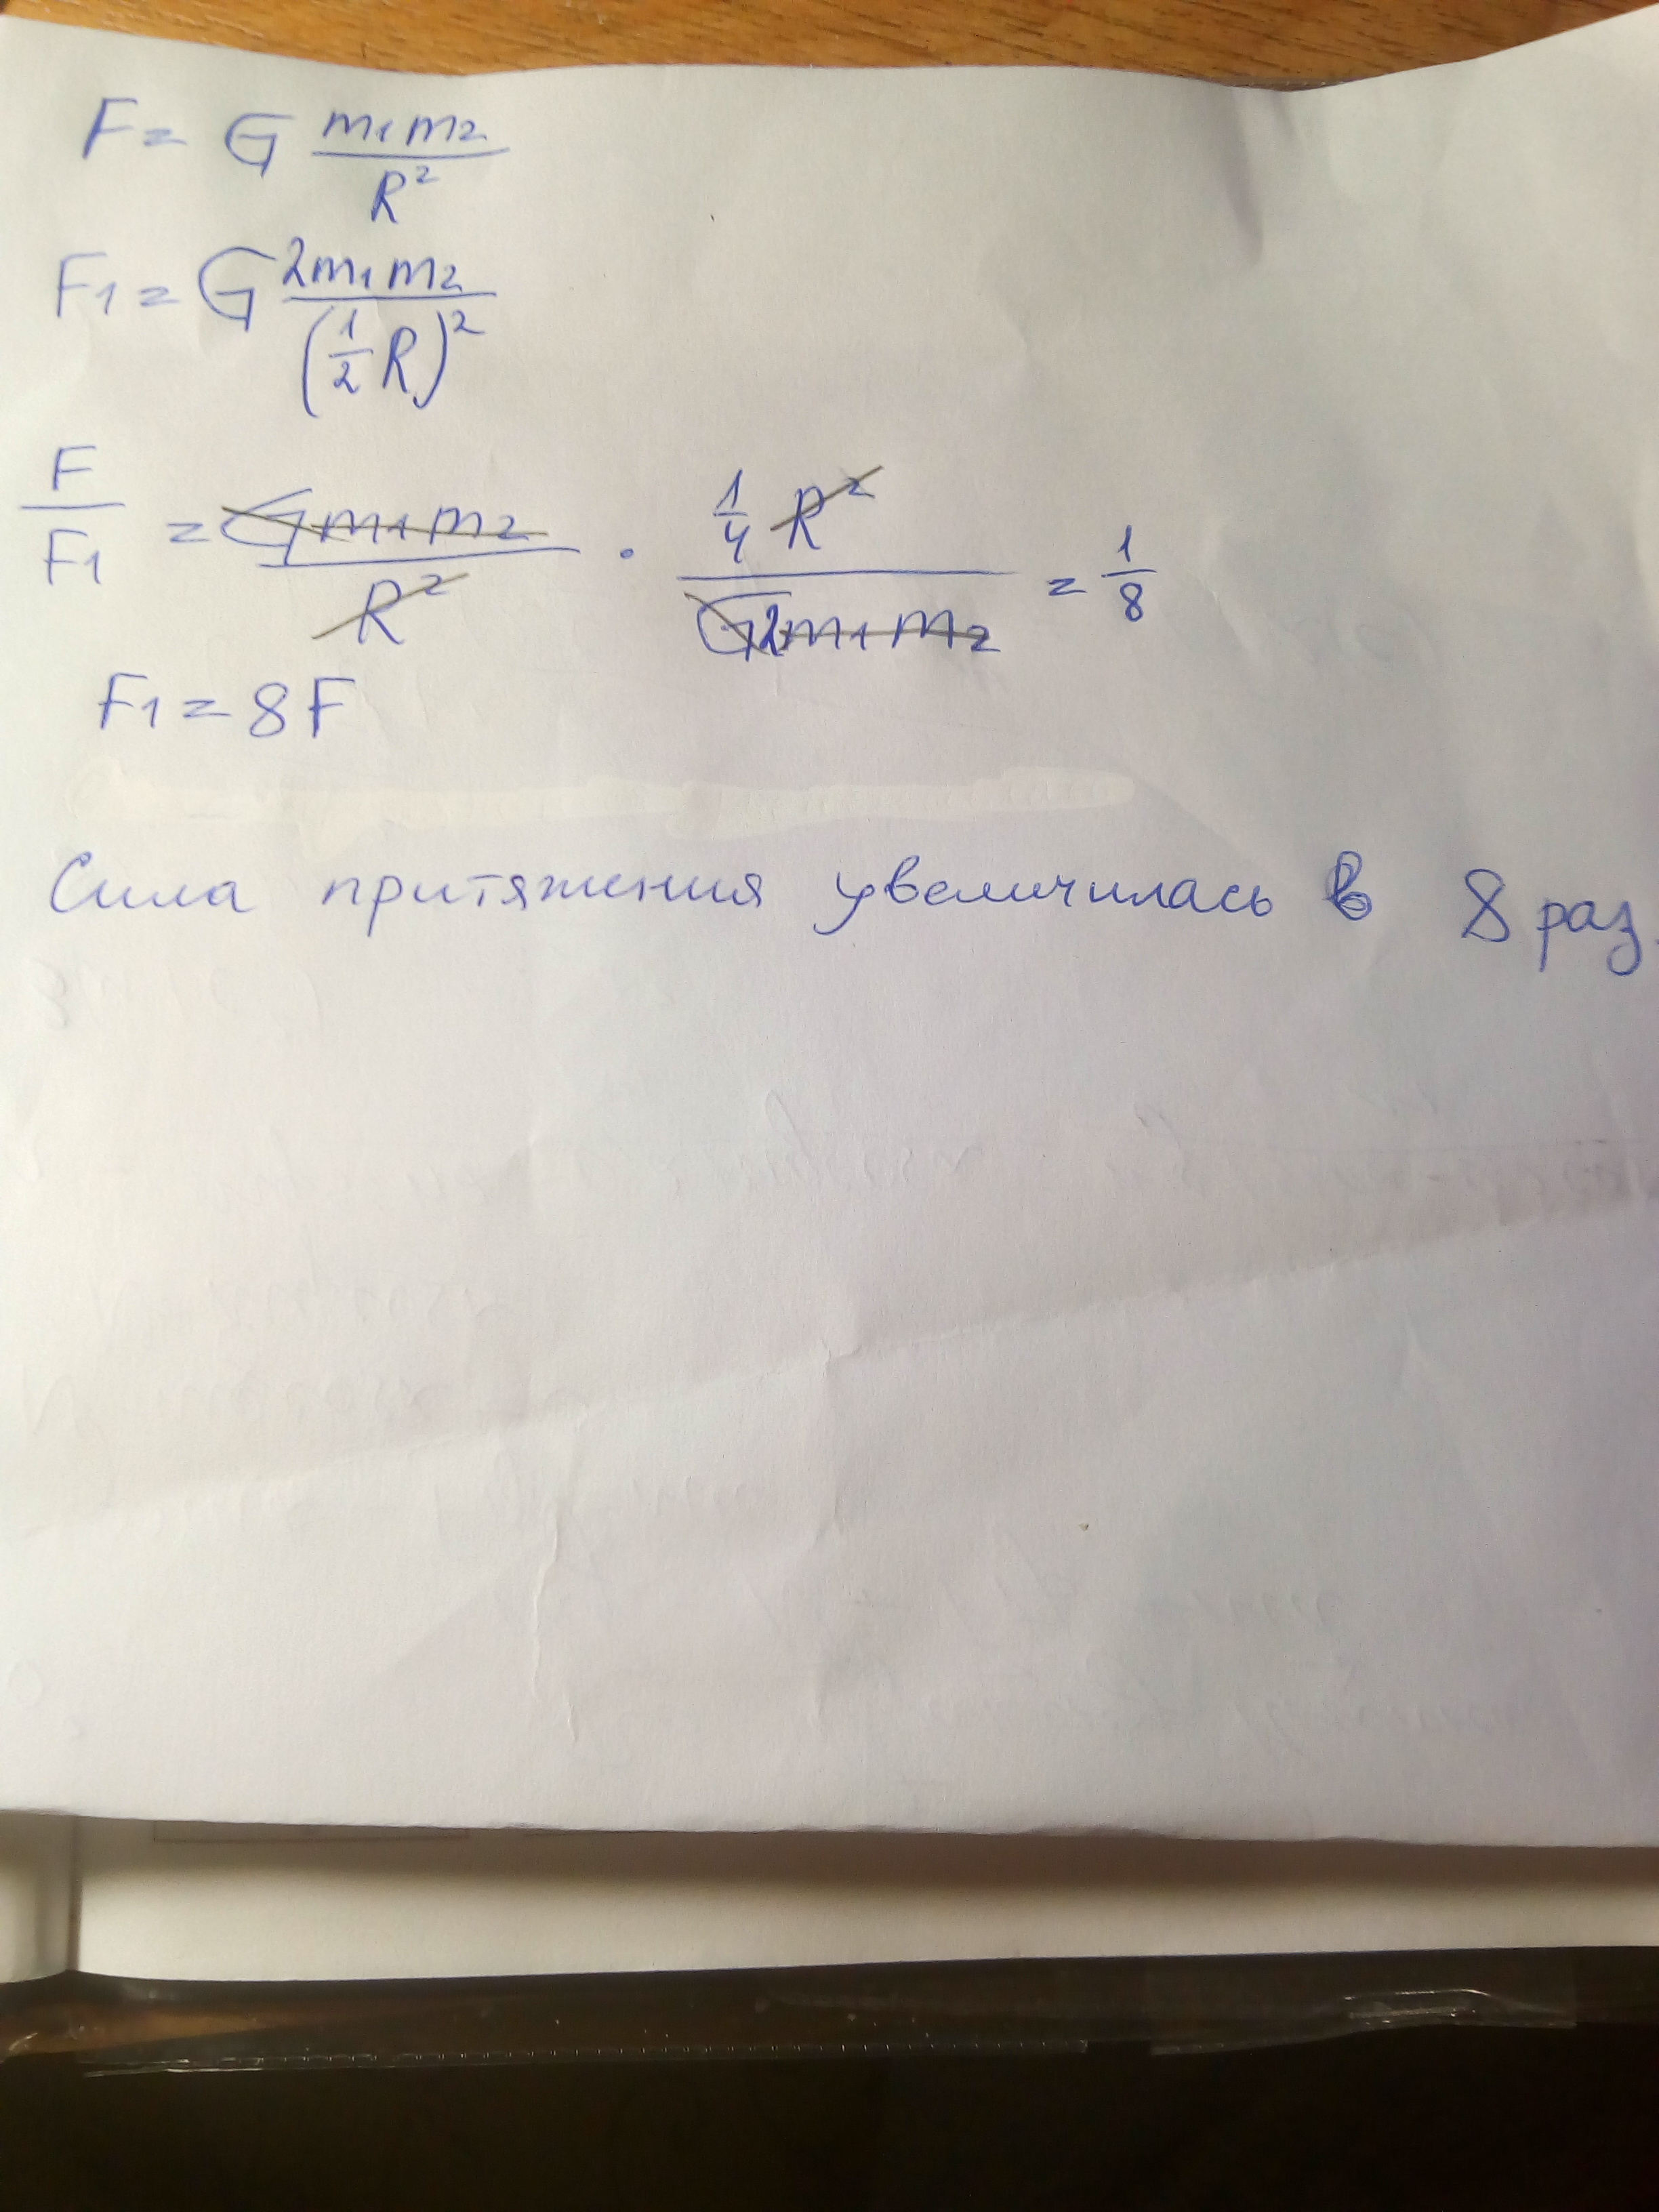 F = G m₁m₂/R²
F₁ = G 2m₁m₂/(1/2 R)²
F/F₁ = Gm₁m₂/R² · 1/4 R²/G2m₁m₂ = 1/8
F₁ = 8F
Сила притяжения увеличилась в 8 раз.